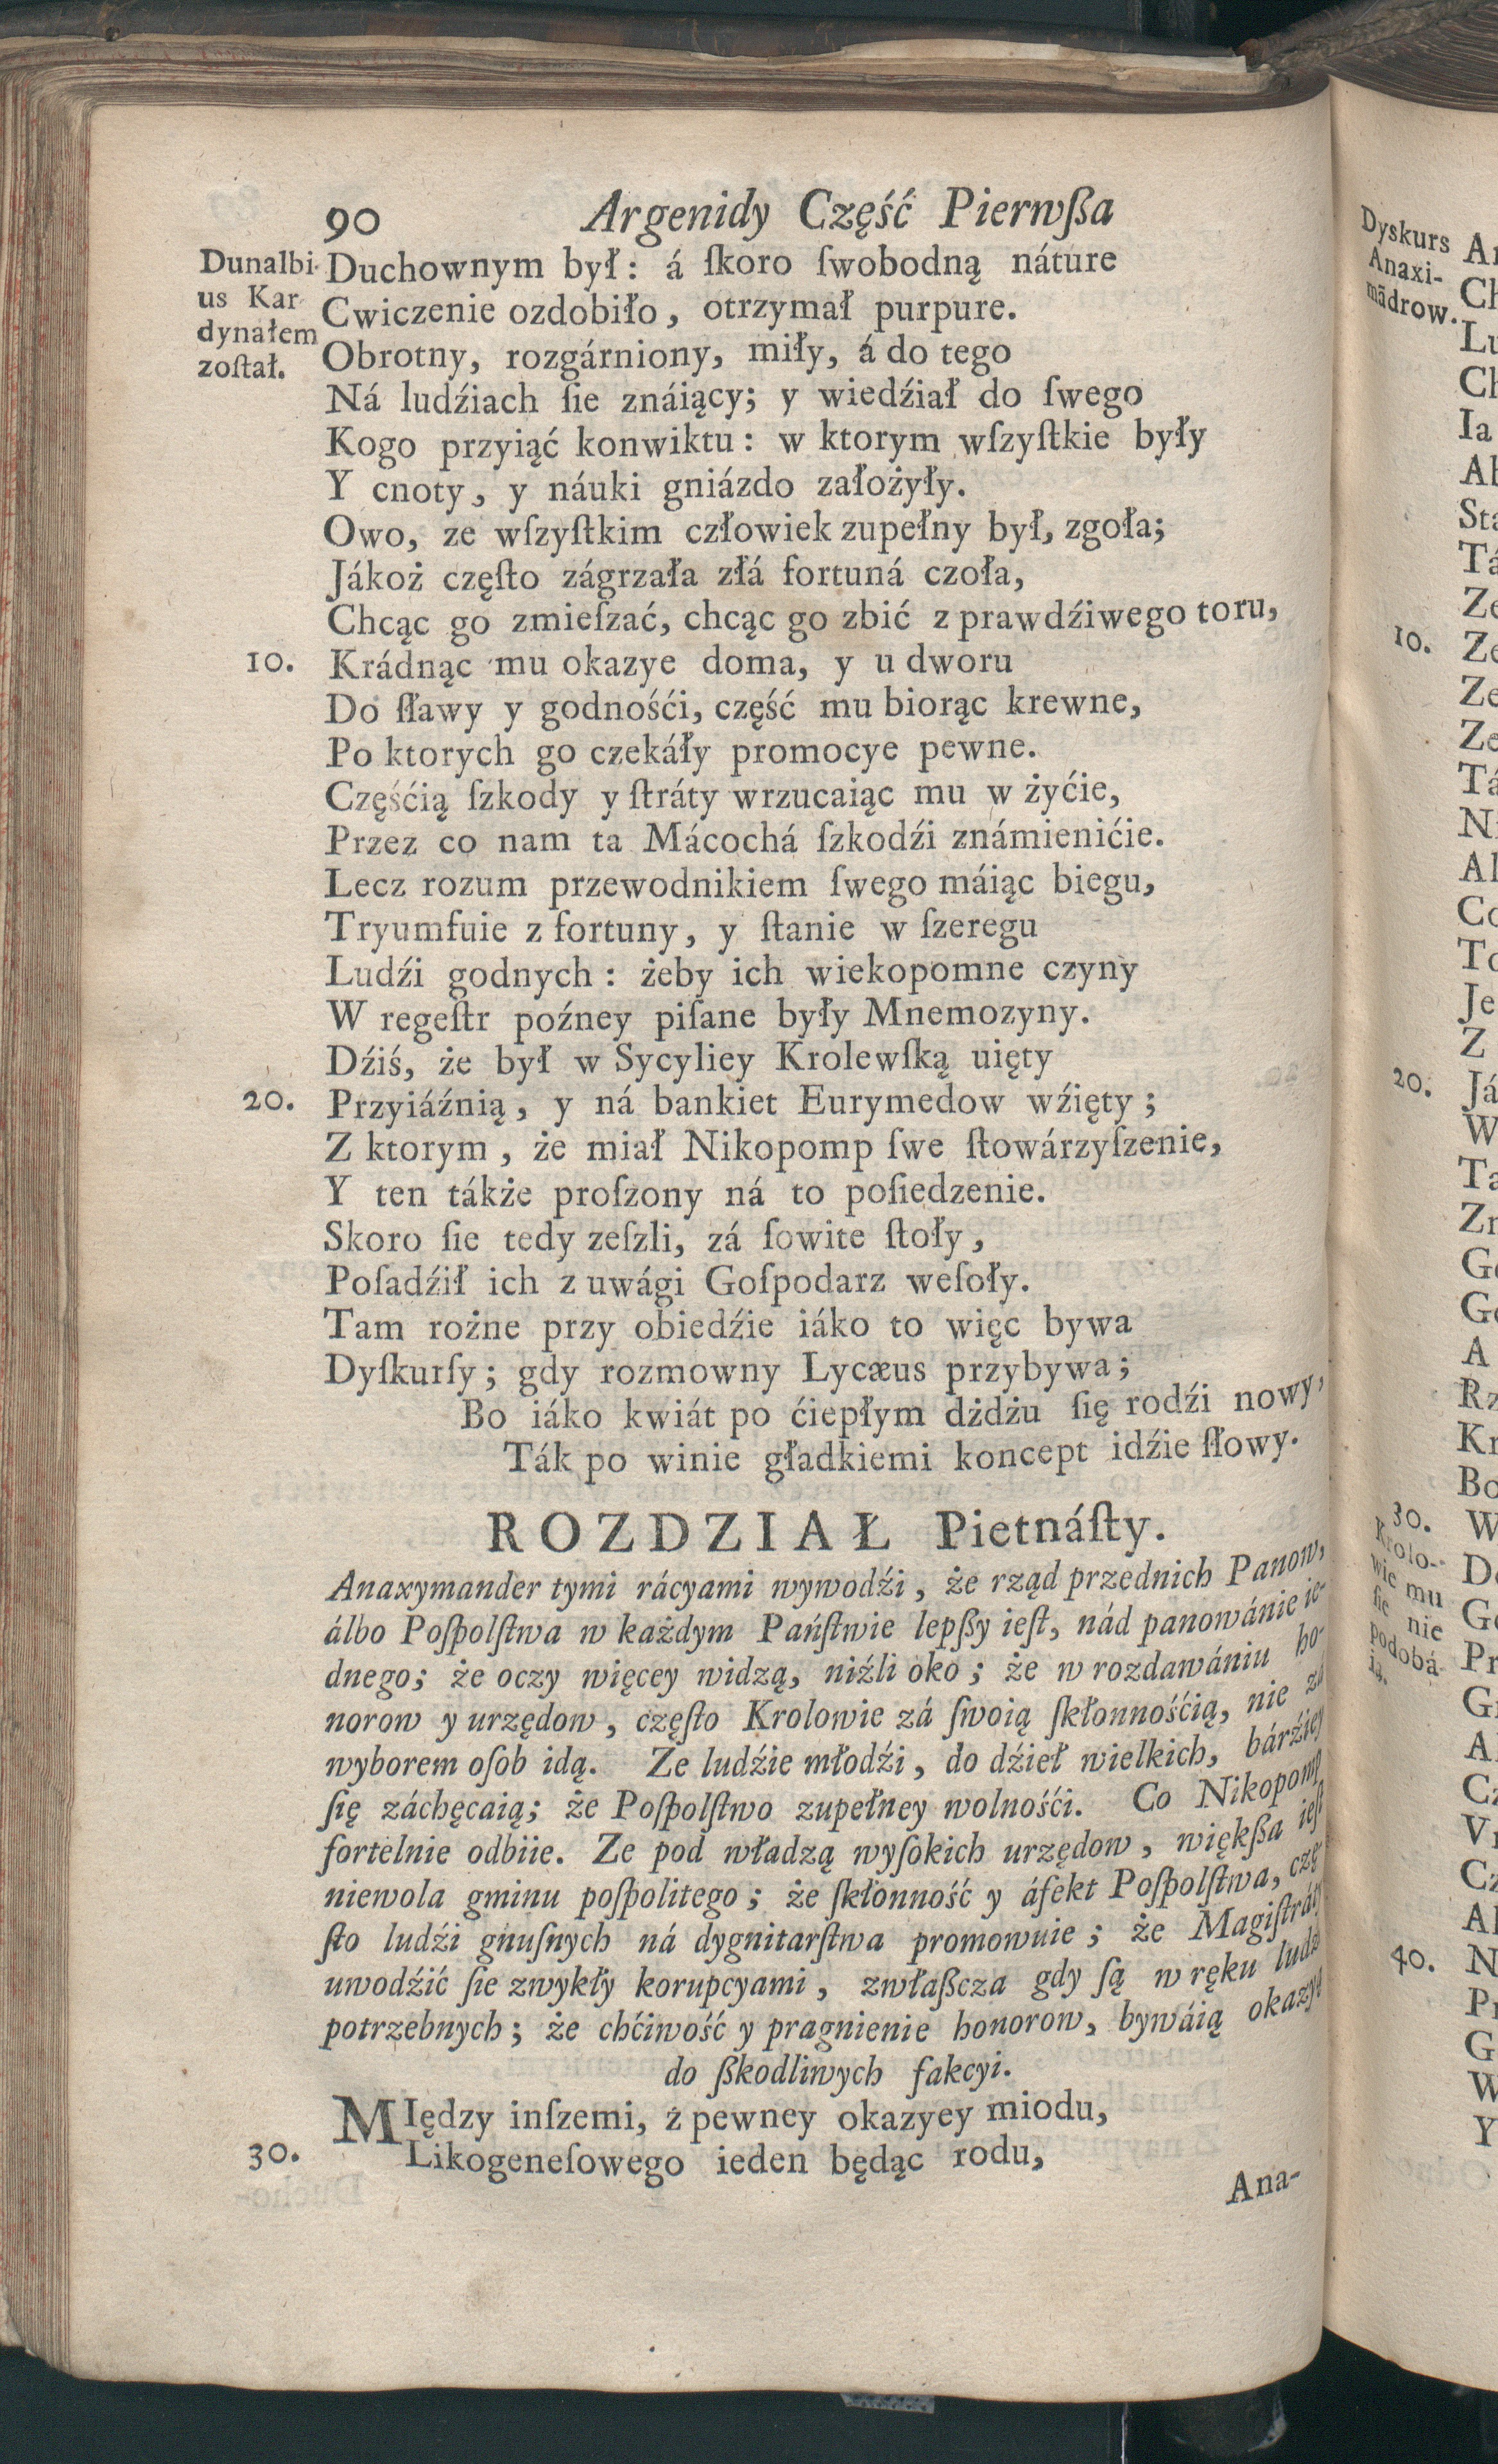 90 Argenidy Część Pierwßa
Dunalbi-
us Kar-
dynałem
zoſtał.
Duchownym był: á ſkoro ſwobodną náture
Cwiczenie ozdobiło, otrzymał purpure.
Obrotny, rozgárniony, miły, á do tego
Ná ludźiach ſie znáiący; y wiedźiał do ſwego
Kogo przyiąć konwiktu: w ktorym wſzyſtkie były
Y cnoty, y náuki gniázdo założyły.
Owo, ze wſzyſtkim człowiek zupełny był, zgoła;
Jákoż częſto zágrzała złá fortuná czoła,
Chcąc go zmieſzać, chcąc go zbić z prawdźiwego toru,
10. Krádnąc mu okazye doma, y u dworu
Do ſławy y godnośći, część mu biorąc krewne,
Po ktorych go czekáły promocye pewne.
Częśćią ſzkody y ſtráty wrzucaiąc mu w żyćie,
Przez co nam ta Mácochá ſzkodźi známienićie.
Lecz rozum przewodnikiem ſwego máiąc biegu,
Tryumfuie z fortuny, y ſtanie w ſzeregu
Ludźi godnych: żeby ich wiekopomne czyny
W regeſtr poźney piſane były Mnemozyny.
Dźiś, że był w Sycyliey Krolewſką uięty
20. Przyiáźnią, y ná bankiet Eurymedow wźięty;
Z ktorym, że miał Nikopomp ſwe ſtowárzyſzenie,
Y ten tákże proſzony ná to poſiedzenie.
Skoro ſie tedy zeſzli, zá ſowite ſtoły,
Poſadźił ich z uwági Goſpodarz weſoły.
Tam rożne przy obiedźie iáko to więc bywa
Dyſkurſy; gdy rozmowny Lycæus przybywa;
Bo iáko kwiát po ćiepłym dżdżu ſię rodźi nowy,
Ták po winie gładkiemi koncept idźie ſłowy.
ROZDZIAŁ Pietnáſty.
Anaxymander tymi rácyami wywodźi, że rząd przednich Panow,
álbo Poſpolſtwa w każdym Páńſtwie lepßy ieſt, nád panowánie ie-
dnego; że oczy więcey widzą, niźli oko; że w rozdawániu ho-
norow y urzędow, częſto Krolowie zá ſwoią ſkłonnośćią, nie zá
wyborem oſob idą. Ze ludźie młodźi, do dźieł wielkich, bárźiey
ſię záchęcaią; że Poſpolſtwo zupełney wolnośći. Co Nikopomp
fortelnie odbiie. Ze pod władzą wyſokich urzędow, większa ieſt
niewola gminu poſpolitego; że ſkłonność y áfekt Poſpolſtwa, czę-
ſto ludźi gnuſnych ná dygnitarſtwa promowuie; że Magiſtráty
uwodźić ſie zwykły korupcyami, zwłaßcza gdy ſą w ręku ludźi
potrzebnych; że chćiwość y pragnienie honorow, bywáią okazyą
do ßkodliwych fakcyi.
MIędzy inſzemi, z pewney okazyey miodu,
30. Likogeneſowego ieden będąc rodu,
Ana-
Dyskurs
Anaxi-
mãdrow.
10.
20.
30.
Krolo-
wie mu
ſie nie
podobá-
ią.
40.